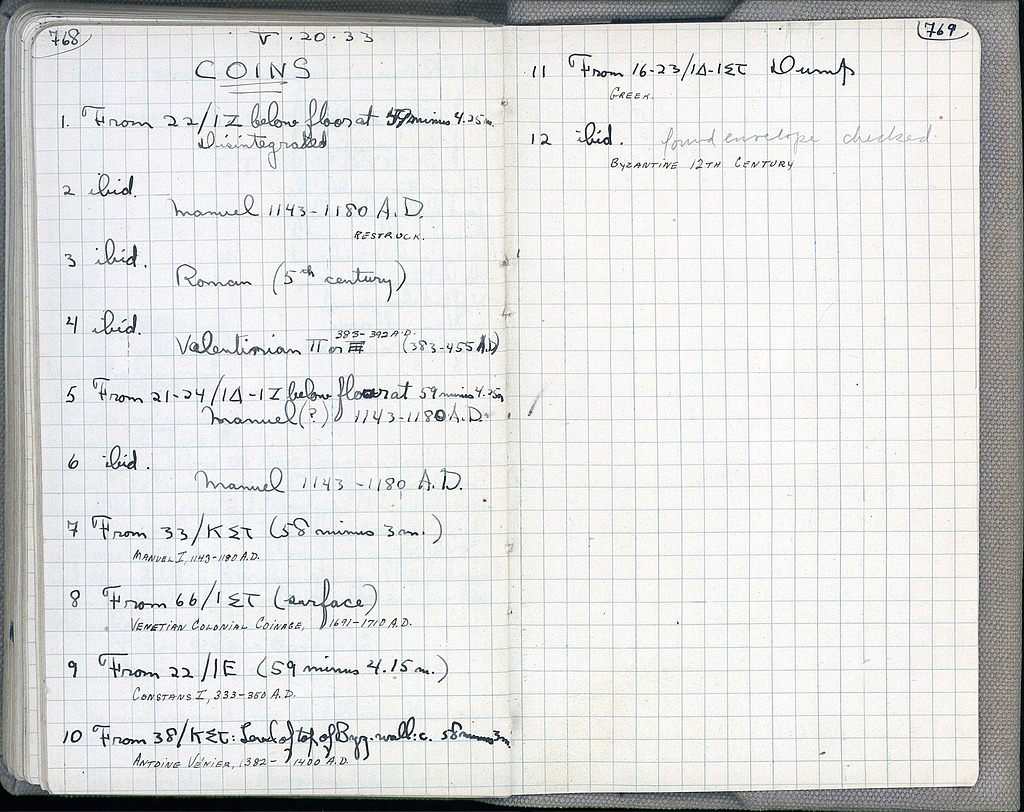 768
V.20.33
COINS
1. From 22/IZ below floor at 59 minus 4.25m.
Disintegrated
2 ibid.
Manuel 1143-1180 A.D.
RESTRUCK.
3 ibid.
Roman (5th century)
4 ibid.
383-392 A.D.
Valentinian II or III (383-455 A.D)
5 From 21-24/IΔ-IZ below floor at 59 minus 4.25m
Manuel (?) 1143-1180 A.D.
6 ibid.
Manuel 1143-1180 A.D.
7 From 33/KΣΤ (58 minus 3m.)
MANUEL I, 1143-1180 A.D.
8 From 66/IΣΤ (surface)
VENETIAN COLONIAL COINAGE, 1691-1710 A.D.
9 From 22/IE (59 minus 4.15m.)
CONSTANS I, 333-350 A.D.
10 From 38/KΣΤ: Level of top of Byz. wall: c. 58 minus 3m.
ANTOINE VÉNIER, 1382-1400 A.D.
769
11 From 16-23/IΔ-IΣΤ Dump
GREEK.
12 ibid. found envelope checked
BYZANTINE 12TH CENTURY